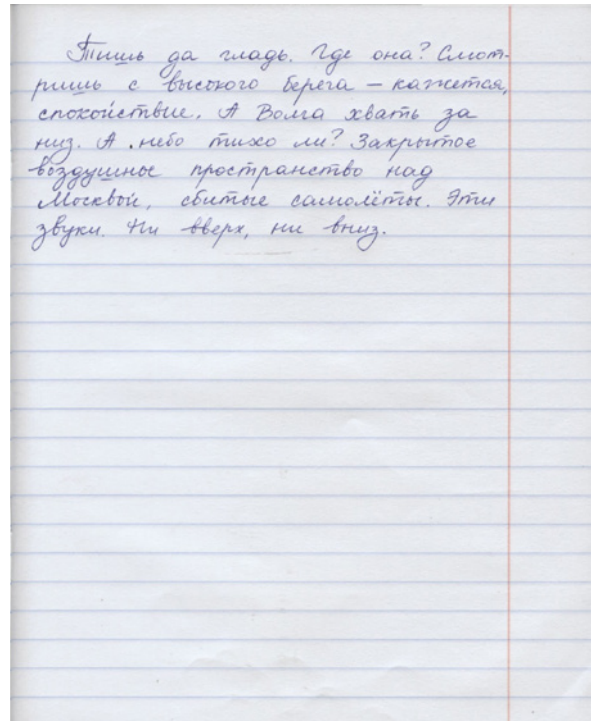 Тишь да гладь. Где она? Смот-
ришь с высокого берега – кажется,
спокойствие. А Волга хвать за
низ. А небо тихо ли? Закрытое
воздушное пространство над
Москвой, сбитые самолёты. Эти
звуки. Ни вверх, ни вниз.